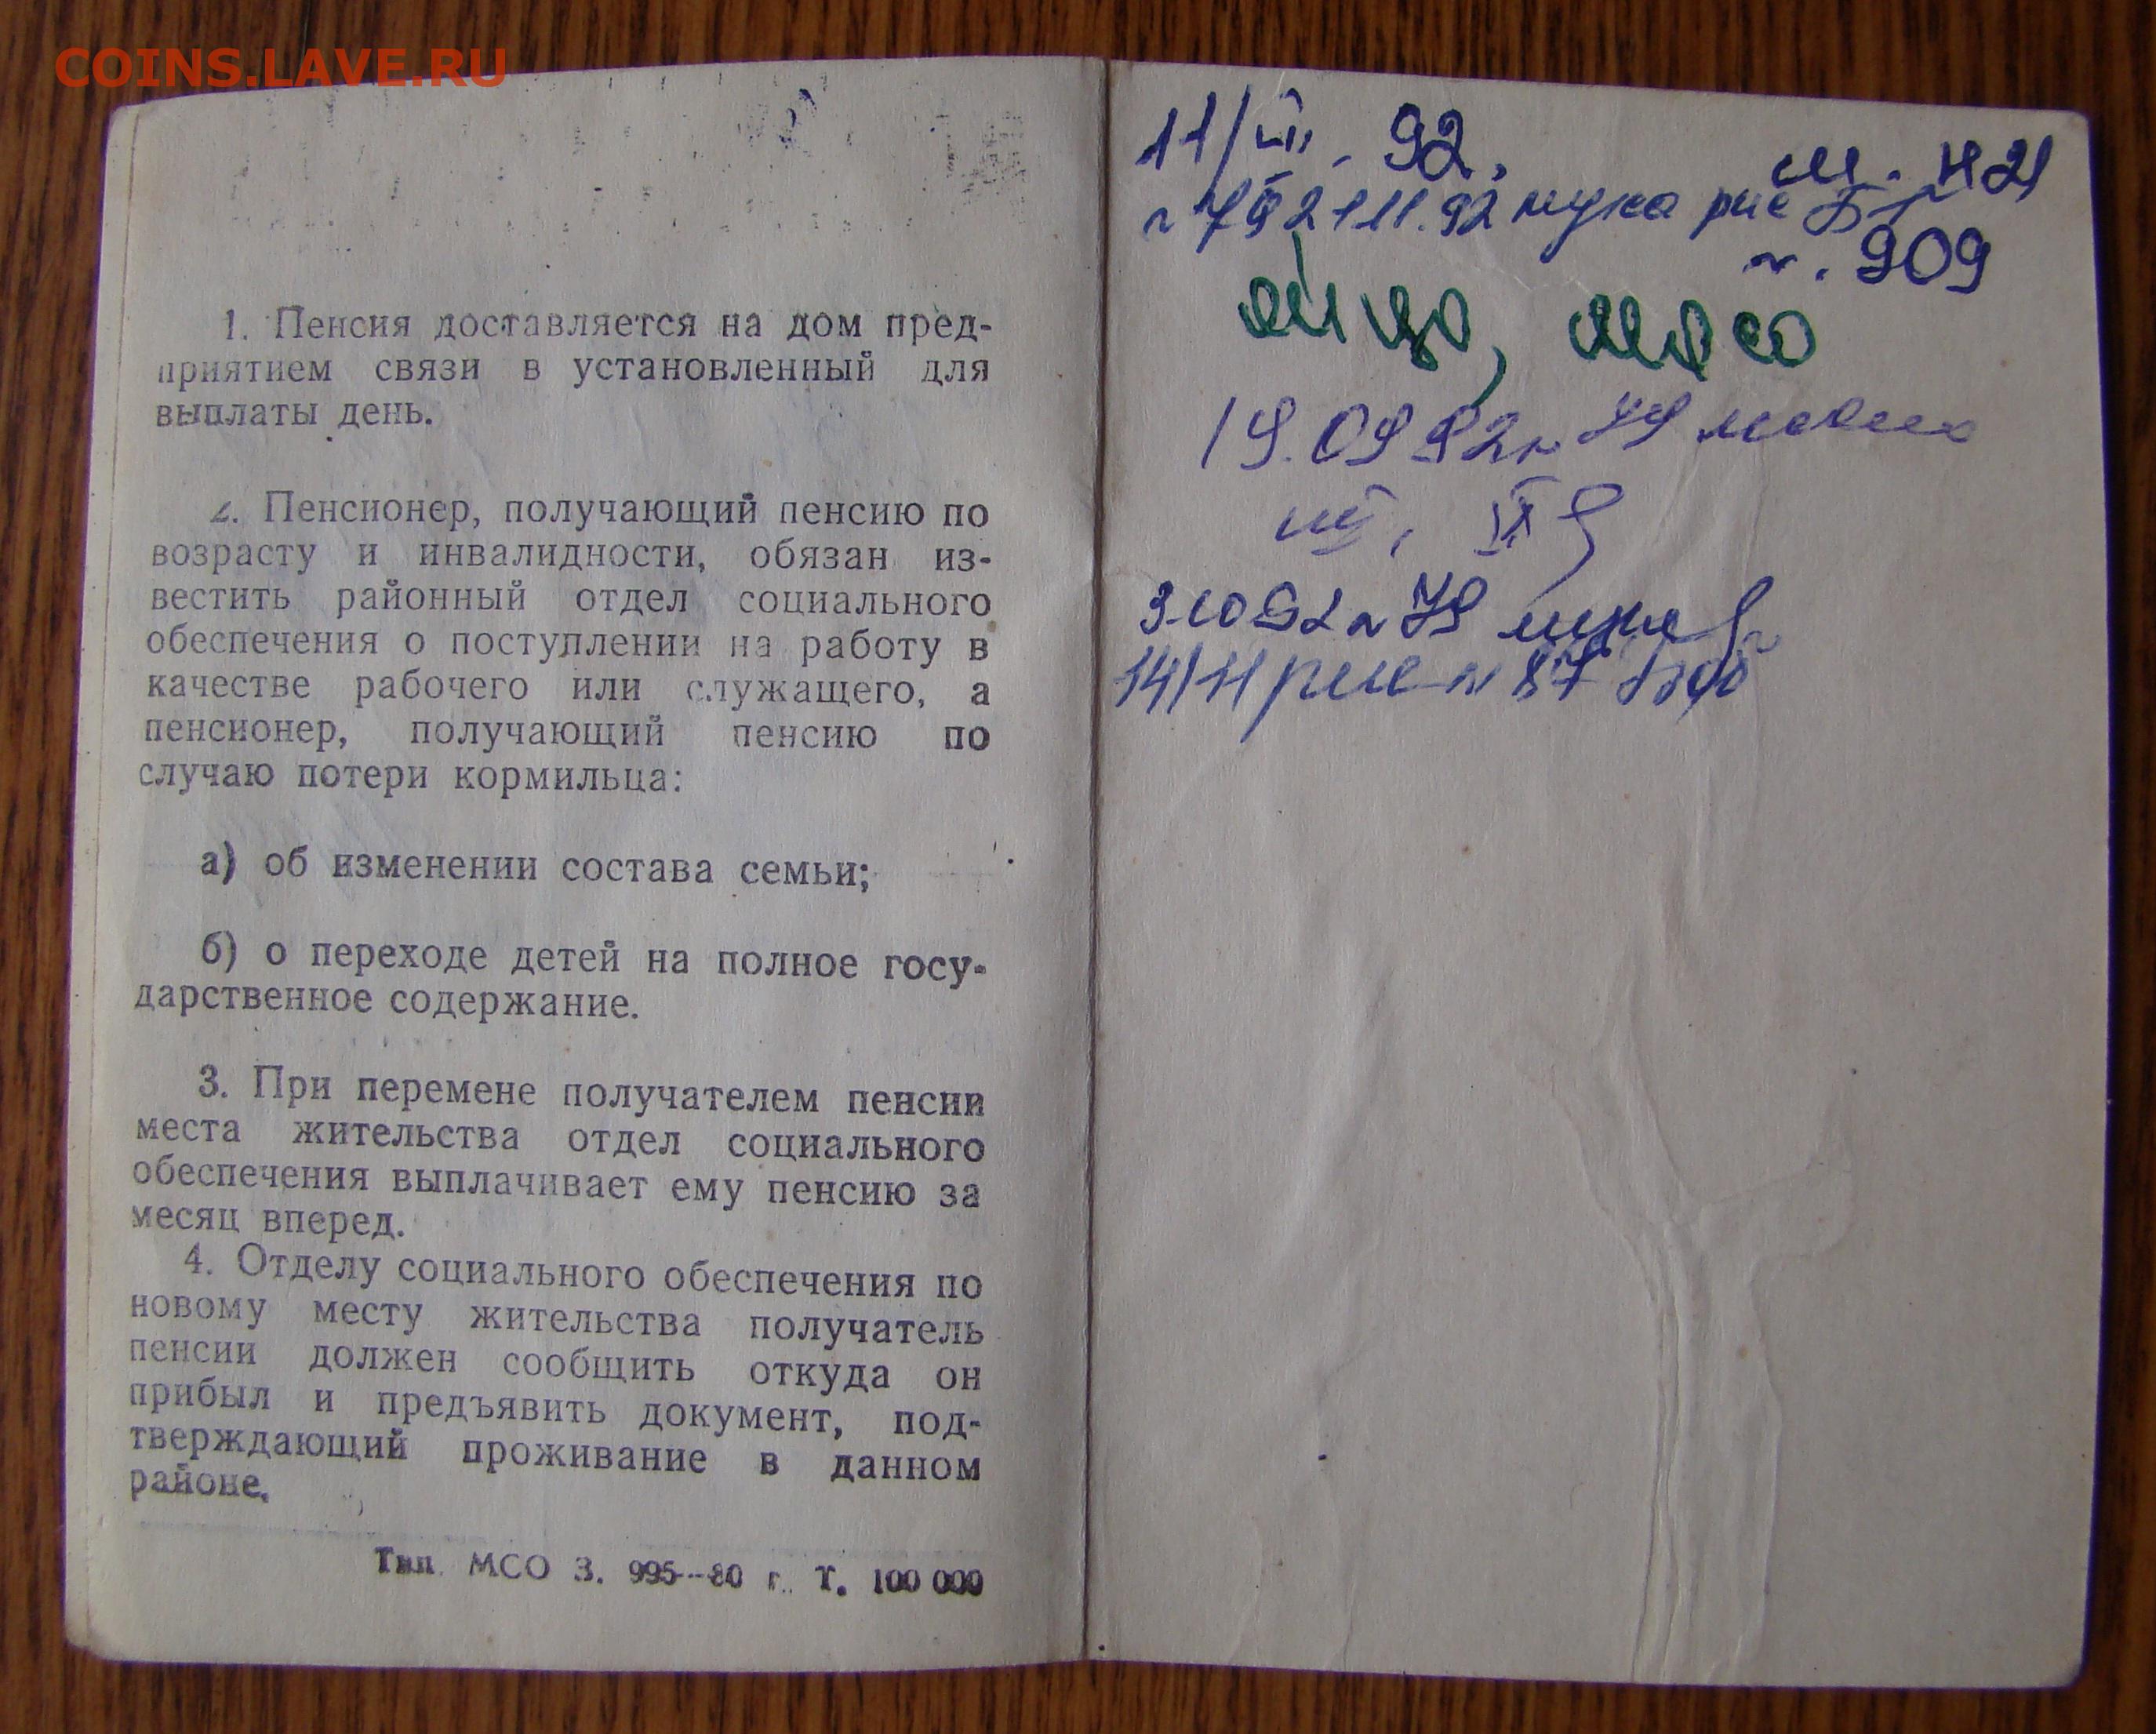 COINS.LAVE.RU
1. Пенсия доставляется на дом пред-
приятием связи в установленный для
выплаты день.
2. Пенсионер, получающий пенсию по
возрасту и инвалидности, обязан из-
вестить районный отдел социального
обеспечения о поступлении на работу в
качестве рабочего или служащего, а
пенсионер, получающий пенсию по
случаю потери кормильца:
а) об изменении состава семьи;
б) о переходе детей на полное госу-
дарственное содержание.
3. При перемене получателем пенсии
места жительства отдел социального
обеспечения выплачивает ему пенсию за
месяц вперед.
4. Отделу социального обеспечения по
новому месту жительства получатель
пенсии должен сообщить откуда он
прибыл и предъявить документ, под-
тверждающий проживание в данном
районе.
Тип. МСО З. 995—80 г. Т. 100 000
11/VIII. 92.
м. 909
92 мука рис
яйцо, мясо
19.09 92 м 79
3.10 92 м 79
14/11 рис м 87